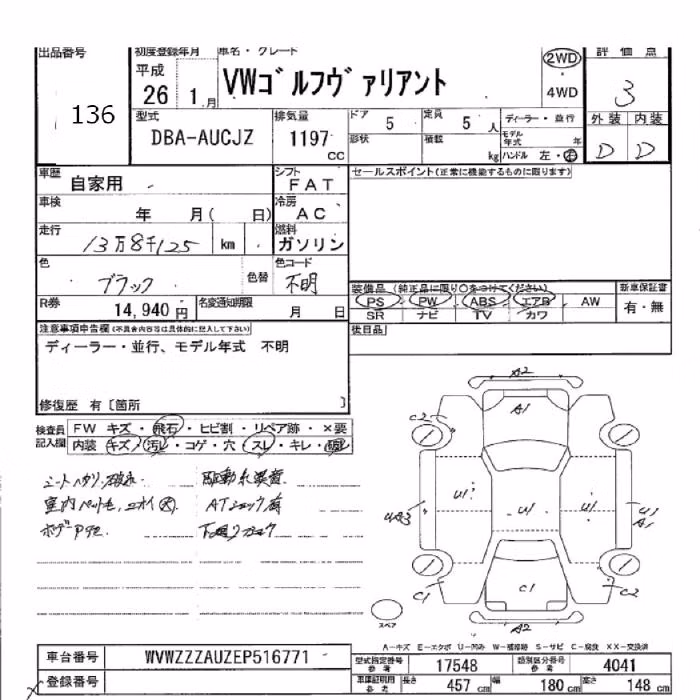 出品番号 初度登録年月 車名・グレード 2WD 評価点
136 平成 26 1月 VWゴルフヴァリアント 4WD 3
型式 排気量 ドア 5 定員 5人 ディーラー・並行 外装 内装
DBA-AUCJZ 1197 CC 形状 積載 kg モデル年式 年 D D
ハンドル 左・右
車歴 自家用 シフト FAT セールスポイント(正常に機能するものに限ります)
車検 年 月( 日) 冷房 AC
走行 13万8千125 km 燃料 ガソリン
色 ブラック 色替 色コード 不明
装備品(純正品に限り○をつけてください) 新車保証書
R券 14,940円 名変通知期限 月 日 PS PW ABS エアB AW 有・無
SR ナビ TV カワ
注意事項申告欄(不具合内容等は具体的に記入して下さい) 後日品
ディーラー・並行、モデル年式 不明
修復歴 有〔箇所 〕
検査員記入欄 FW キズ・飛石・ヒビ割・リペア跡・×要
内装 キズ・汚レ・コゲ・穴・スレ・キレ・破レ
シートヘタリ、破れ 駆動系異音
室内ペット毛、ニオイ大 ATショック有
ボデーP他
A2
A1
C2
U1 U1 U1 U1
A1
C1 C1 C2
スペア A2
A-キズ E-エクボ U-凹み W-補修跡 S-サビ C-腐食 XX-交換済
車台番号 WVWZZZAUZEP516771 型式指定番号 参考 17548 類別区分番号 参考 4041
登録番号 車庫証明用 参考 長さ 457cm 幅 180cm 高さ 148cm